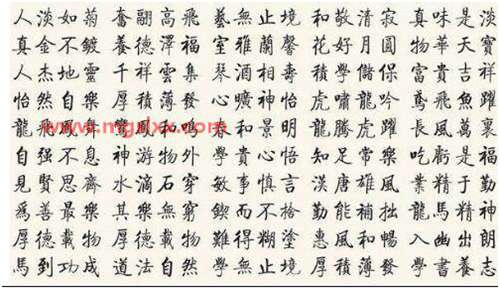 人淡如菊 奮翮高飛 藝無止境 和敬清寂 真味是淡
真金不鍍 養德澤福 室雅蘭馨 花好月圓 物華天寶
人杰地靈 千祥雲集 琴酒相壽 積學儲保 富貴吉祥
怡然自樂 厚積薄發 心曠神怡 虎嘯龍吟 鳶飛魚躍
龍飛 和鳴 和景明 龍騰虎躍 長風萬裏
www.mgdxx.com
自强不息 神游物外 學貴心悟 知足常樂 吃虧是福
見賢思齊 水滴石穿 敏事慎言 漢唐雄風 業精于勤
爲善最樂 其樂無窮 鍥而不捨 勤能補拙 龍馬精神
厚德載物 厚德載物 難得糊塗 惠風和暢 入幽出朗
馬到功成 道法自然 學無止境 厚積薄發 學書養志